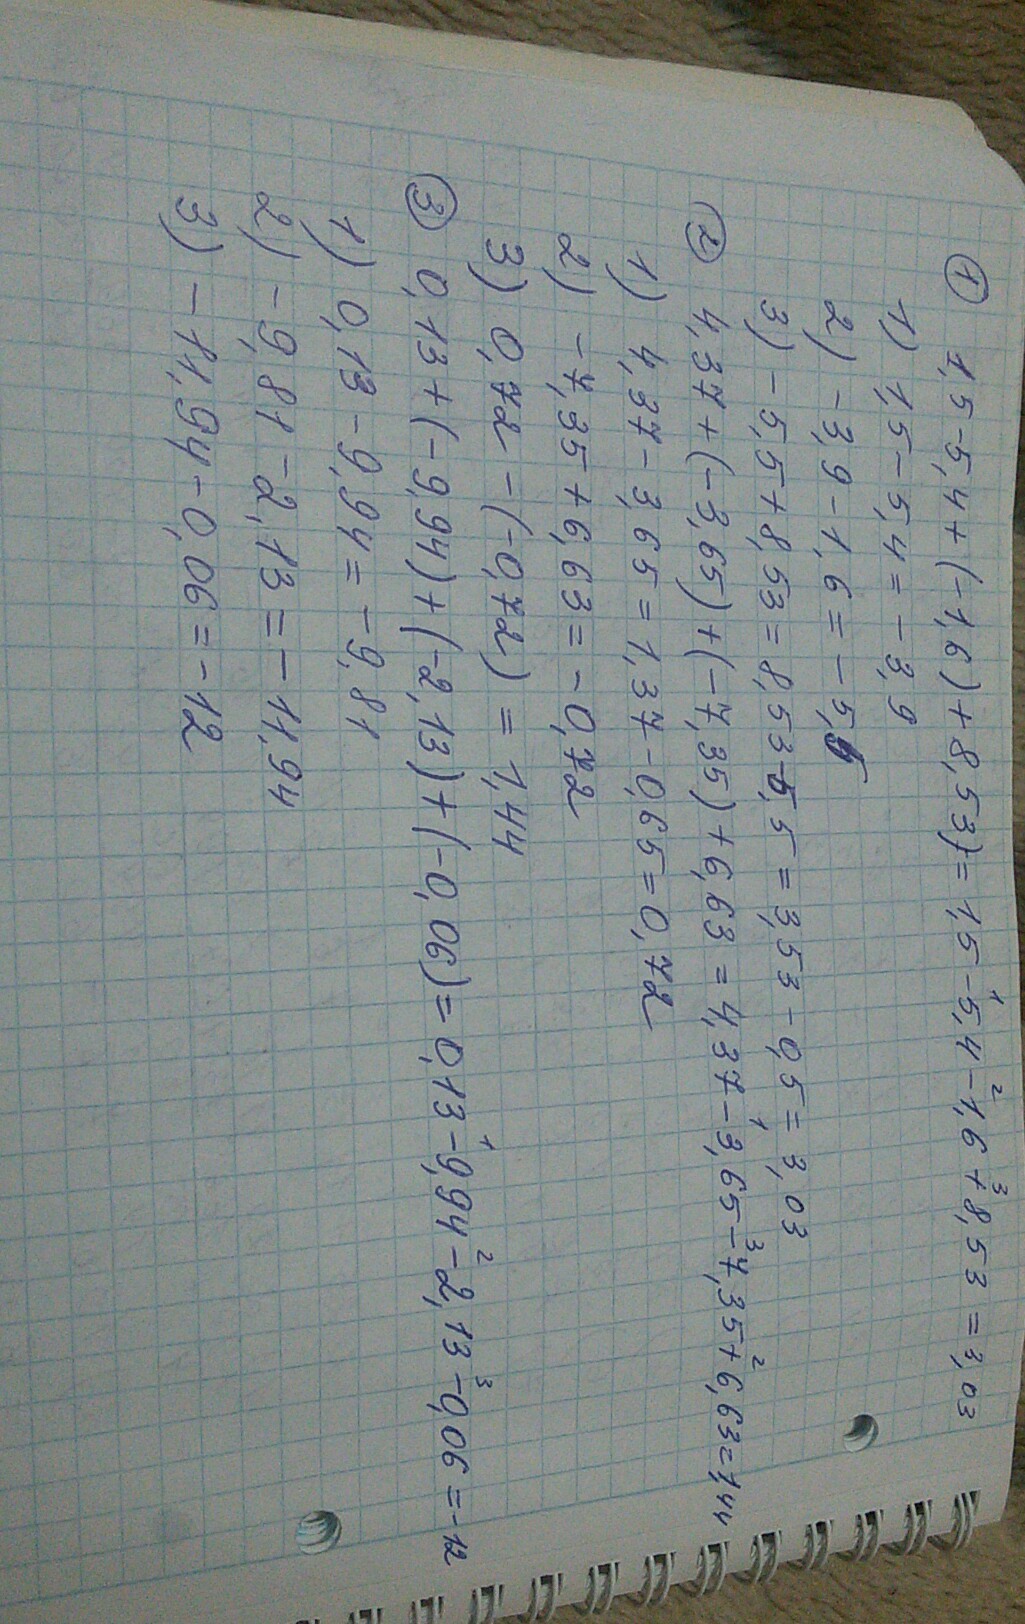 ① 1,5-5,4+(-1,6)+8,53)=1,5-¹5,4-²1,6+³8,53=3,03
1) 1,5-5,4=-3,9
2) -3,9-1,6=-5,5
3) -5,5+8,53=8,53-5,5=3,53-0,5=3,03
② 4,37+(-3,65)+(-7,35)+6,63=4,37-¹3,65-³7,35+²6,63=1,44
1) 4,37-3,65=1,37-0,65=0,72
2) -7,35+6,63=-0,72
3) 0,72-(-0,72)=1,44
③ 0,13+(-9,94)+(-2,13)+(-0,06)=0,13-¹9,94-²2,13-³0,06=-12
1) 0,13-9,94=-9,81
2) -9,81-2,13=-11,94
3) -11,94-0,06=-12